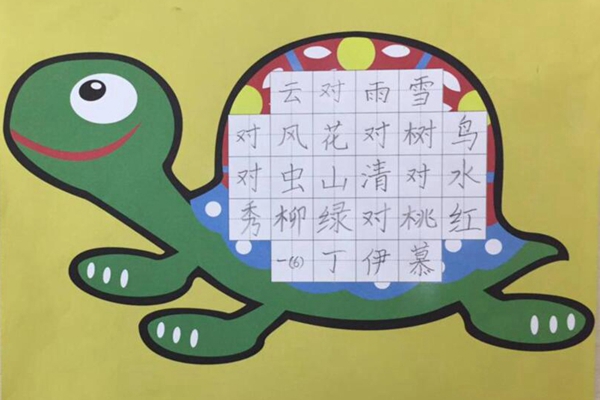 云对雨雪
对风花对树鸟
对虫山清对水
秀柳绿对桃红
一(6)丁伊慕